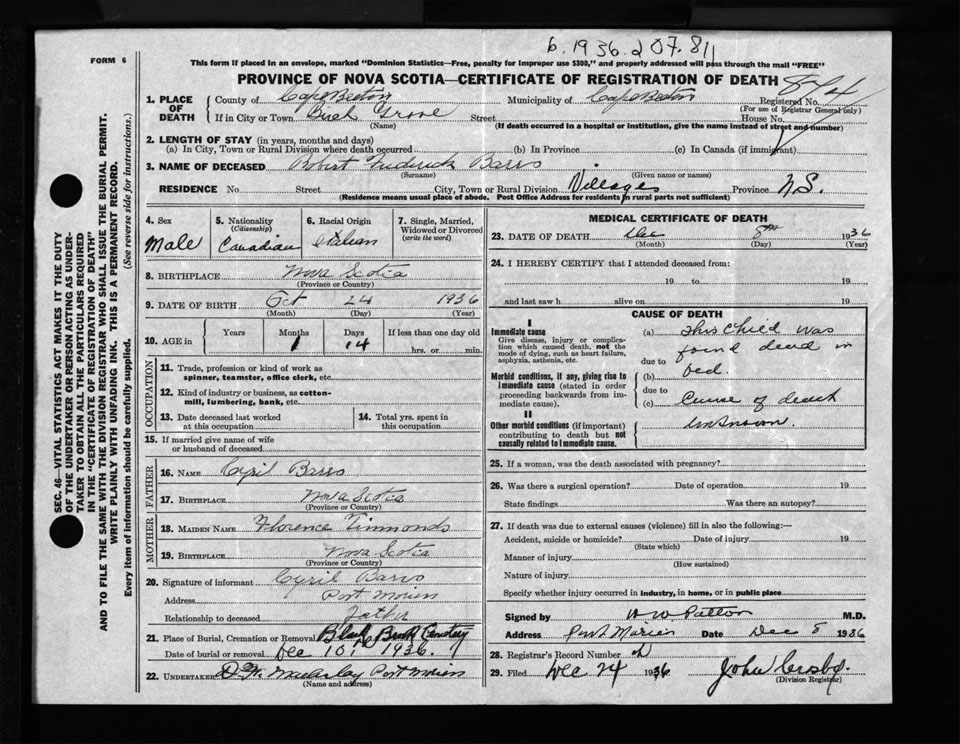 6.1936.207.811
FORM 6
This form if placed in an envelope, marked "Dominion Statistics—Free, penalty for improper use $300," and properly addressed will pass through the mail "FREE"
PROVINCE OF NOVA SCOTIA—CERTIFICATE OF REGISTRATION OF DEATH
1. PLACE OF DEATH
County of Cape Breton Municipality of Cape Breton Registered No.
(For use of Registrar General only)
If in City or Town Birch Grove Street House No.
(Name) (If death occurred in a hospital or institution, give the name instead of street and number)
2. LENGTH OF STAY (in years, months and days)
(a) In City, Town or Rural Division where death occurred (b) In Province (c) In Canada (if immigrant)
3. NAME OF DECEASED Robert Frederick Barvo
(Surname) (Given name or names)
RESIDENCE No. Street City, Town or Rural Division Villages Province N.S.
(Residence means usual place of abode. Post Office Address for residents in rural parts not sufficient)
4. Sex
Male
5. Nationality
(Citizenship)
Canadian
6. Racial Origin
Italian
7. Single, Married, Widowed or Divorced
(write the word)
8. BIRTHPLACE Nova Scotia
(Province or Country)
9. DATE OF BIRTH Oct 24 1936
(Month) (Day) (Year)
10. AGE in
Years Months Days If less than one day old
1 14 hrs. or min.
OCCUPATION
11. Trade, profession or kind of work as spinner, teamster, office clerk, etc.
12. Kind of industry or business, as cotton-mill, lumbering, bank, etc.
13. Date deceased last worked at this occupation
14. Total yrs. spent in this occupation
15. If married give name of wife or husband of deceased
FATHER
16. NAME Cyril Barvo
17. BIRTHPLACE Nova Scotia
(Province or Country)
MOTHER
18. MAIDEN NAME Florence Timmonds
19. BIRTHPLACE Nova Scotia
(Province or Country)
20. Signature of informant Cyril Barvo
Address Port Morien
Relationship to deceased Father
21. Place of Burial, Cremation or Removal Black Brook Cemetery
Date of burial or removal Dec 10th 1936.
22. UNDERTAKER Port Morien
(Name and address)
MEDICAL CERTIFICATE OF DEATH
23. DATE OF DEATH Dec 8th 1936
(Month) (Day) (Year)
24. I HEREBY CERTIFY that I attended deceased from:
19 to 19
and last saw h alive on 19
CAUSE OF DEATH
I
Immediate cause
Give disease, injury or complication which caused death, not the mode of dying, such as heart failure, asphyxia, asthenia, etc.
(a) This Child was
found dead in
due to
(b) bed.
Morbid conditions, if any, giving rise to immediate cause (stated in order proceeding backwards from immediate cause).
due to
(c) Cause of death
unknown.
II
Other morbid conditions (if important) contributing to death but not causally related to immediate cause.
25. If a woman, was the death associated with pregnancy?
26. Was there a surgical operation? Date of operation 19
State findings Was there an autopsy?
27. If death was due to external causes (violence) fill in also the following:—
Accident, suicide or homicide? Date of injury 19
(State which)
Manner of injury
(How sustained)
Nature of injury
Specify whether injury occurred in industry, in home, or in public place
Signed by H W Patton M.D.
Address Port Morien Date Dec 8 1936
28. Registrar's Record Number
29. Filed Dec 24 1936 John Crosby.
(Division Registrar)
SEC. 46—VITAL STATISTICS ACT MAKES IT THE DUTY
OF THE UNDERTAKER OR PERSON ACTING AS UNDER-
TAKER TO OBTAIN ALL THE PARTICULARS REQUIRED
IN THE "CERTIFICATE OF REGISTRATION OF DEATH"
AND TO FILE THE SAME WITH THE DIVISION REGISTRAR WHO SHALL ISSUE THE BURIAL PERMIT.
WRITE PLAINLY WITH UNFADING INK. THIS IS A PERMANENT RECORD.
Every item of information should be carefully supplied. (See reverse side for instructions.)